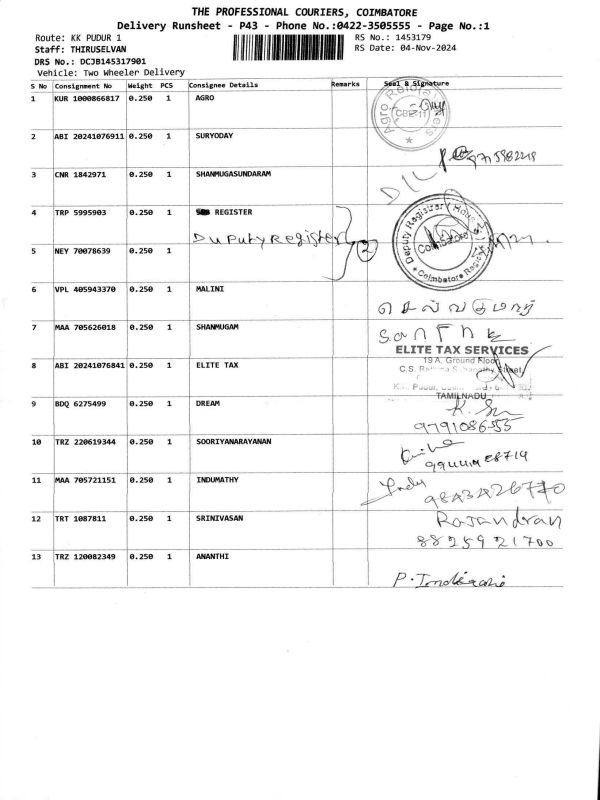 THE PROFESSIONAL COURIERS, COIMBATORE
Delivery Runsheet - P43 - Phone No.:0422-3505555 - Page No.:1
Route: KK PUDUR 1
RS No.: 1453179
Staff: THIRUSELVAN
RS Date: 04-Nov-2024
DRS No.: DCJB145317901
Vehicle: Two Wheeler Delivery
S No Consignment No Weight PCS Consignee Details Remarks Seal & Signature
1 KUR 1000866817 0.250 1 AGRO
2 ABI 20241076911 0.250 1 SURYODAY
3 CNR 1842971 0.250 1 SHANMUGASUNDARAM
4 TRP 5995903 0.250 1 REGISTER
Duputy Register 2
Deputy Registrar
Coimbatore
5 NEY 70078639 0.250 1
6 VPL 405943370 0.250 1 MALINI
செல்வகுமார்
7 MAA 705626018 0.250 1 SHANMUGAM
8 ABI 20241076841 0.250 1 ELITE TAX
ELITE TAX SERVICES
19 A, Ground Floor
Street
TAMILNADU
9 BDQ 6275499 0.250 1 DREAM
9791086555
10 TRZ 220619344 0.250 1 SOORIYANARAYANAN
11 MAA 705721151 0.250 1 INDUMATHY
Indu
12 TRT 1087811 0.250 1 SRINIVASAN
Rajandran
8825921700
13 TRZ 120082349 0.250 1 ANANTHI